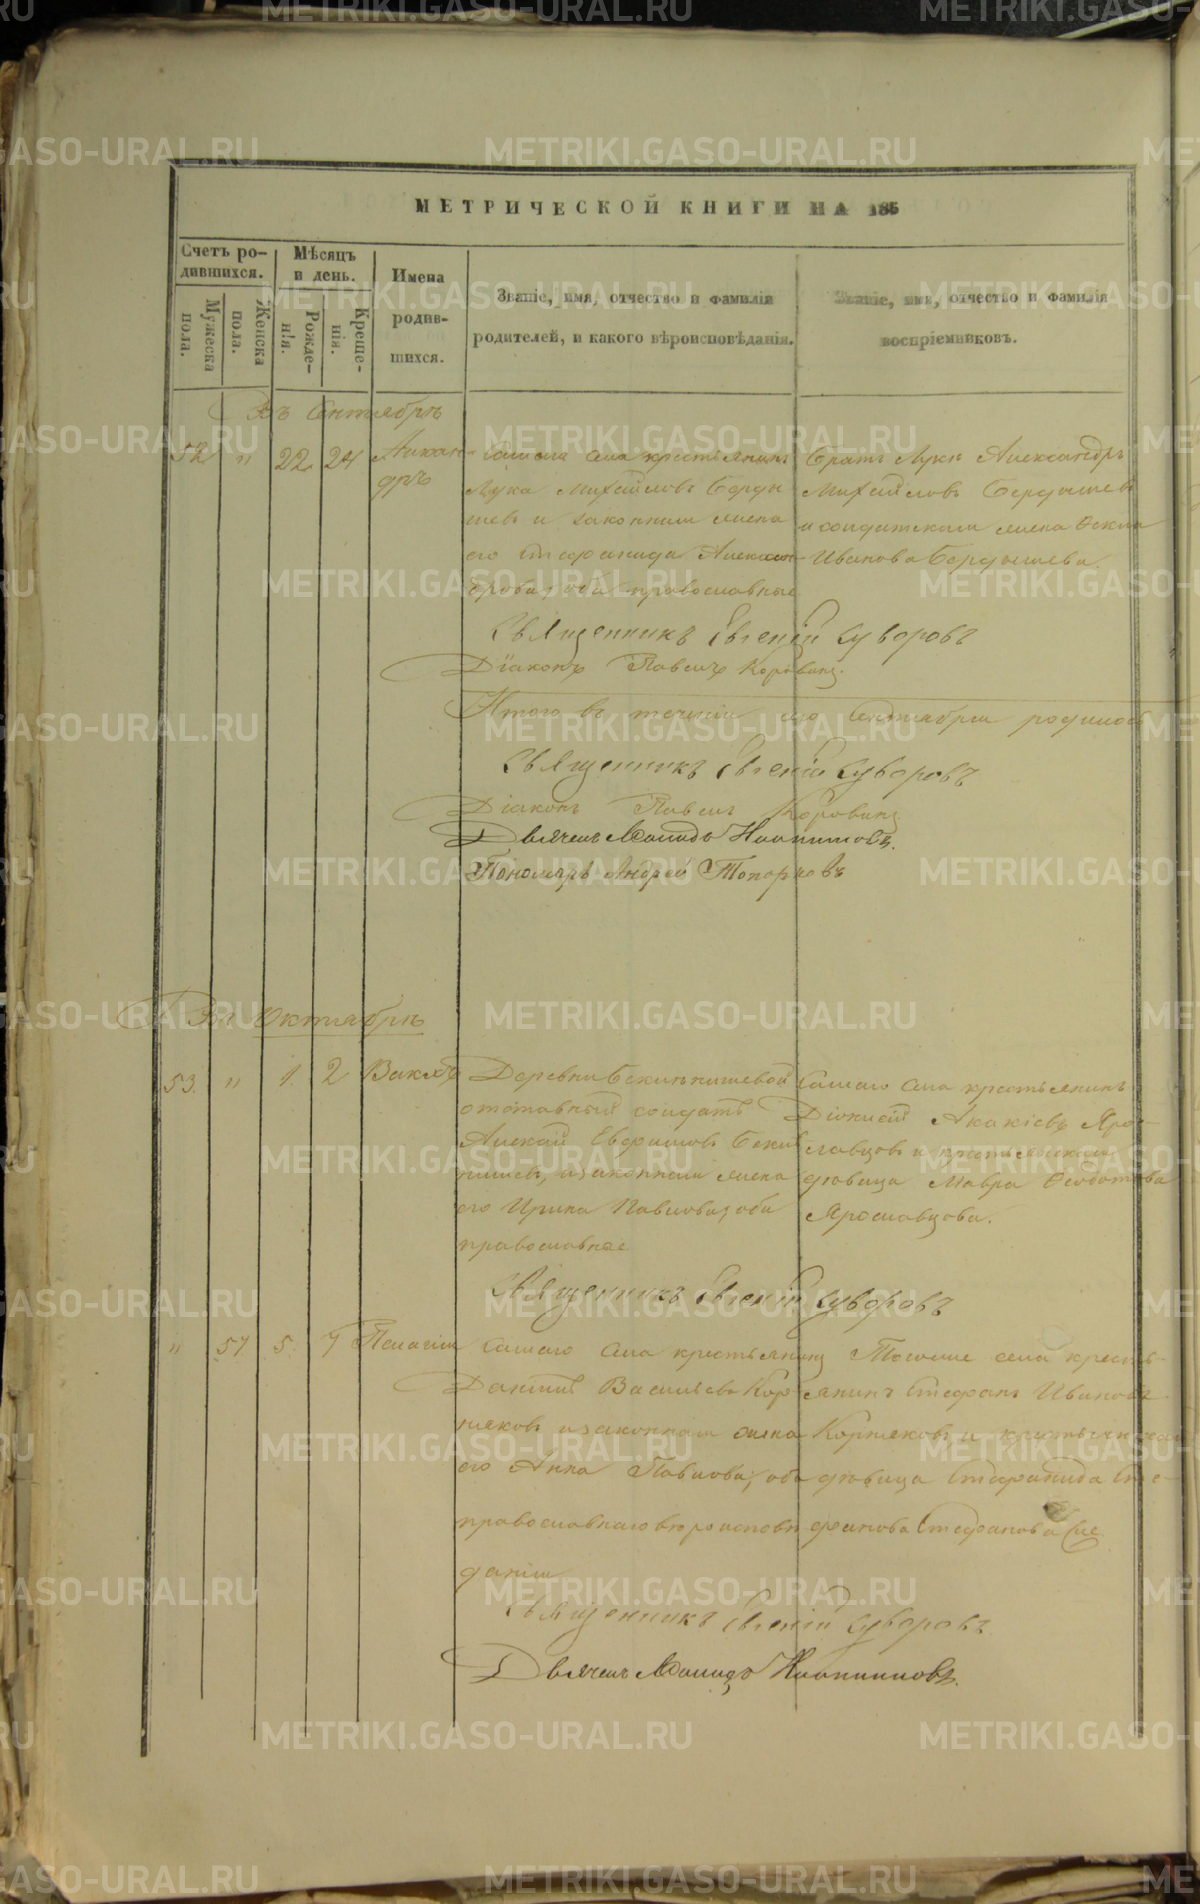 МЕТРИЧЕСКОЙ КНИГИ НА 185
Счетъ ро-
дившихся.
Мѣсяцъ
и день.
Имена
родив-
шихся.
Званіе, имя, отчество и фамилія
родителей, и какого вѣроисповѣданія.
Званіе, имя, отчество и фамилія
воспріемниковъ.
Мужеска
пола.
Женска
пола.
Рожде-
нія.
Креще-
нія.
Въ Сентябрѣ
52 " 22 24 Никан-
дръ
Самаго села крестьянинъ
Лука Михайловъ Берды
шевъ и законная жена
его Стефанида Алексан-
дрова, оба православные
Братъ Луки Александръ
Михайловъ Бердышевъ
и солдатская жена
Иванова Бердышева.
Священникъ Евгеній Суворовъ
Діаконъ Павелъ Коровинъ.
Итого въ теченіи Сентября родилось
Священникъ Евгеній Суворовъ
Діаконъ Павелъ Коровинъ
Дьячекъ
Пономарь Андрей Топорковъ
Въ Октябрѣ
53. " 1. 2
Деревни
отставный солдатъ
Алексѣй Евфимовъ
и законная жена
его Ирина Павлова, оба
православные
Самаго села крестьянинъ
Діонисій Акакіевъ Яро-
славцовъ и крестьянская
дѣвица Мавра Ѳеодотова
Ярославцова.
Священникъ Евгеній Суворовъ
" 57 5. 7 Пелагія
Самаго села крестьянинъ
Даніилъ Васильевъ Кор-
няковъ и законная жена
его Анна Павлова, оба
православнаго вѣроисповѣ
данія
Тогоже села кресть-
янинъ Стефанъ Ивановъ
Корняковъ и крестьянская
дѣвица Стефанида Сте-
фанова
Священникъ Евгеній Суворовъ
Дьячекъ
METRIKI.GASO-URAL.RU